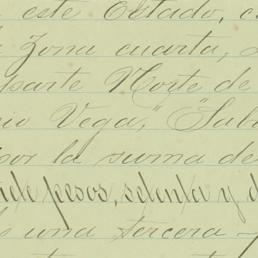 este Estado, c
Zona cuarta,
parte Norte de
io Vega," "Sab
por la suma de
de pesos, setenta y d
e una tercera